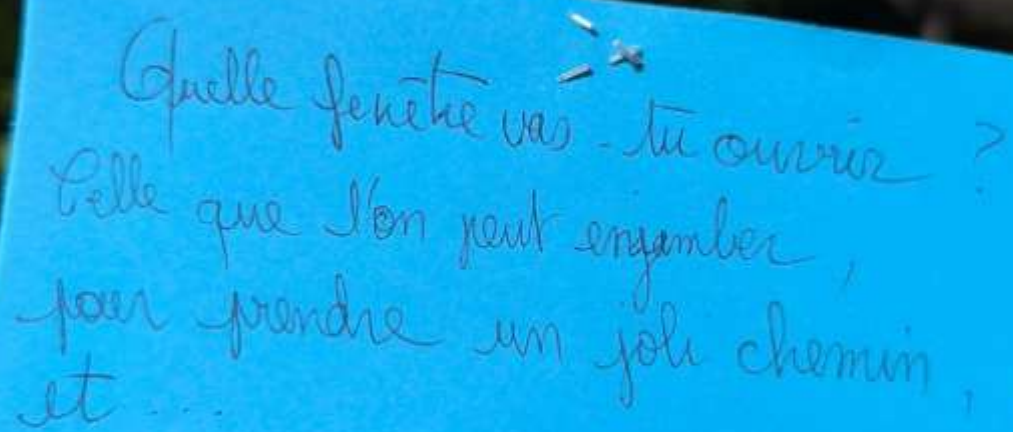 Quelle fenêtre vas-tu ouvrir ?
Celle que l'on peut enjamber,
pour prendre un joli chemin,
et ...